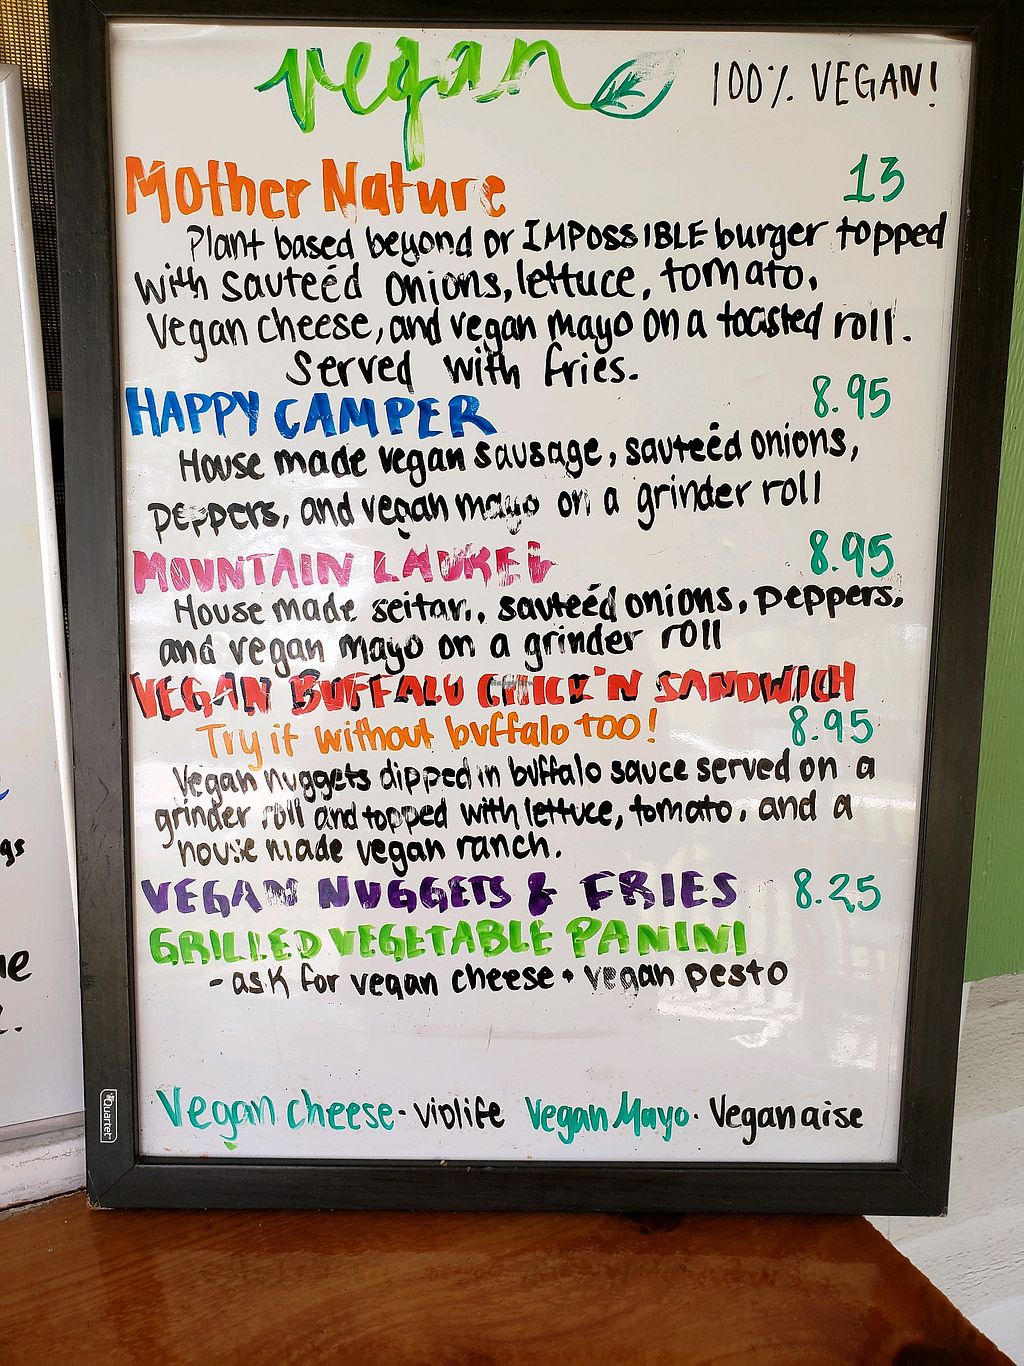 vegan
100% VEGAN!
Mother Nature 13
Plant based beyond or IMPOSSIBLE burger topped
with sauteéd onions, lettuce, tomato,
Vegan cheese, and vegan mayo on a toasted roll.
Served with fries.
HAPPY CAMPER 8.95
House made vegan sausage, sauteéd onions,
peppers, and vegan mayo on a grinder roll
MOUNTAIN LAUREL 8.95
House made seitan, sauteéd onions, peppers,
and vegan mayo on a grinder roll
VEGAN BUFFALO CHICK'N SANDWICH
Try it without buffalo too! 8.95
Vegan nuggets dipped in buffalo sauce served on a
grinder roll and topped with lettuce, tomato, and a
house made vegan ranch.
VEGAN NUGGETS & FRIES 8.25
GRILLED VEGETABLE PANINI
- ask for vegan cheese + vegan pesto
Vegan cheese - violife Vegan Mayo - Veganaise
Quartet